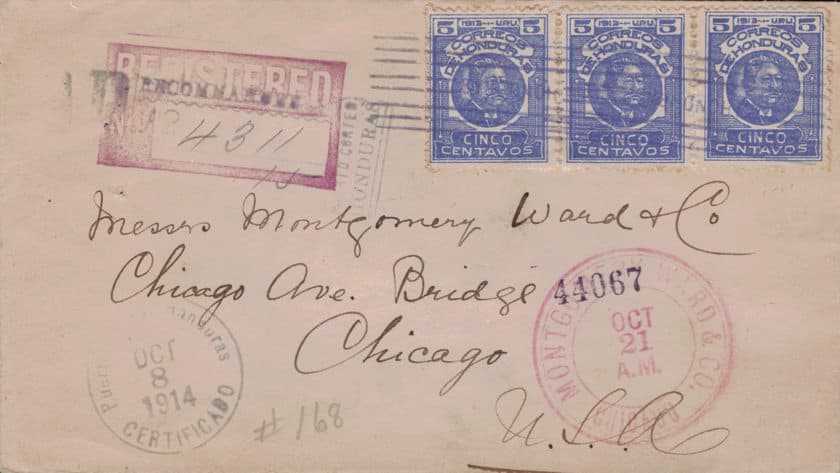 5 1913--U.P.U. 5
CORREOS
DE HONDURAS
CINCO
CENTAVOS
5 1913--U.P.U. 5
CORREOS
DE HONDURAS
CINCO
CENTAVOS
5 1913--U.P.U. 5
CORREOS
DE HONDURAS
CINCO
CENTAVOS
REGISTERED
4311
HONDURAS
Messrs Montgomery Ward & Co
Chicago Ave. Bridge
Chicago
U.S.A
44067
MONTGOMERY WARD & CO.
OCT
21
A.M.
CHICAGO
Honduras
OCT
8
1914
CERTIFICADO
# 168